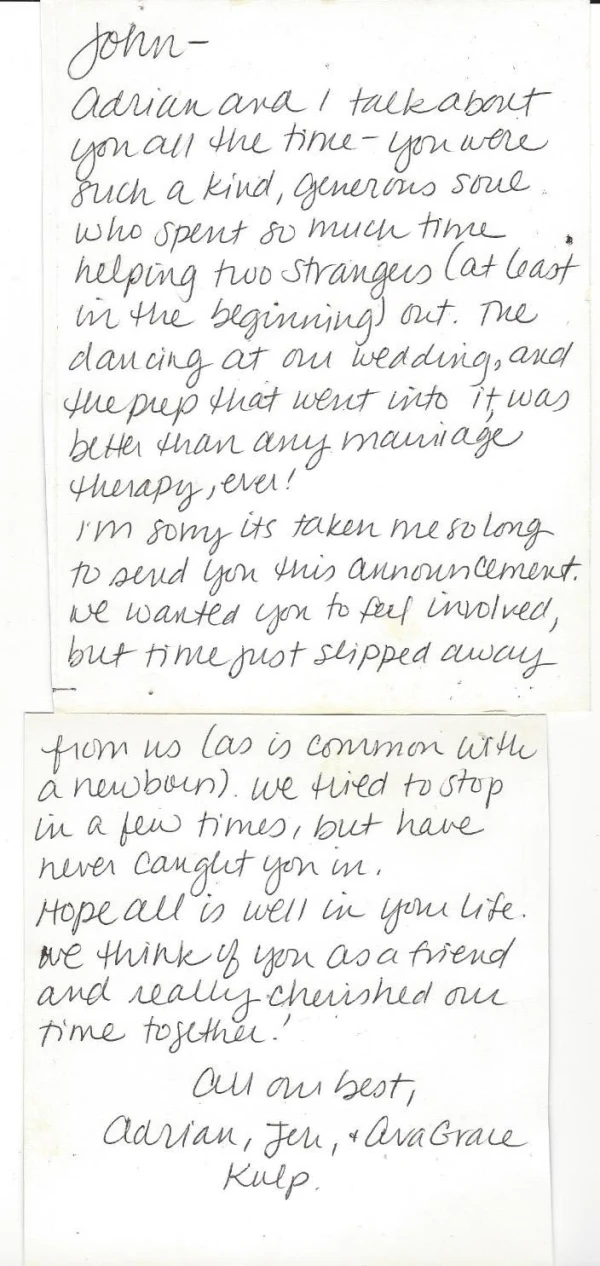 John—
Adrian and I talk about
you all the time - you were
such a kind, generous soul
who spent so much time
helping two strangers (at least
in the beginning) out. The
dancing at our wedding, and
the prep that went into it, was
better than any marriage
therapy, ever!
I'm sorry its taken me so long
to send you this announcement.
We wanted you to feel involved,
but time just slipped away
from us (as is common with
a newborn). We tried to stop
in a few times, but have
never caught you in.
Hope all is well in your life.
We think of you as a friend
and really cherished our
time together!
All our best,
Adrian, Jen, + Ava Grace
Kulp.